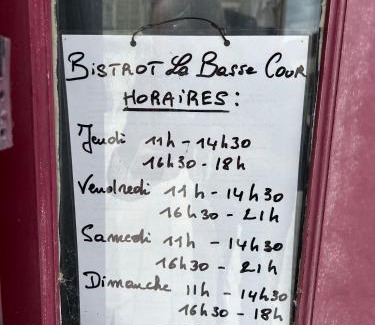 BISTROT La Basse Cour
HORAIRES :
Jeudi 11h - 14h30
16h30 - 18h
Vendredi 11h - 14h30
16h30 - 21h
Samedi 11h - 14h30
16h30 - 21h
Dimanche 11h - 14h30
16h30 - 18h